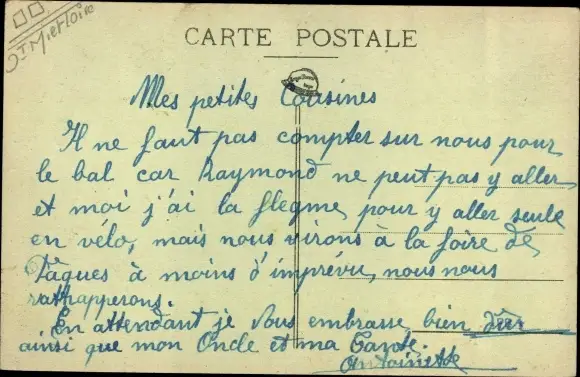 Dt M. et Loire
CARTE POSTALE
Mes petites Cousines
Il ne faut pas compter sur nous pour
le bal car Raymond ne peut pas y aller
et moi j'ai la flegme pour y aller seule
en vélo, mais nous virons à la foire de
Pâques à moins d'imprévu, nous nous
rathapperons.
En attendant je vous embrasse bien dûr
ainsi que mon Oncle et ma Tante.
Antoinette